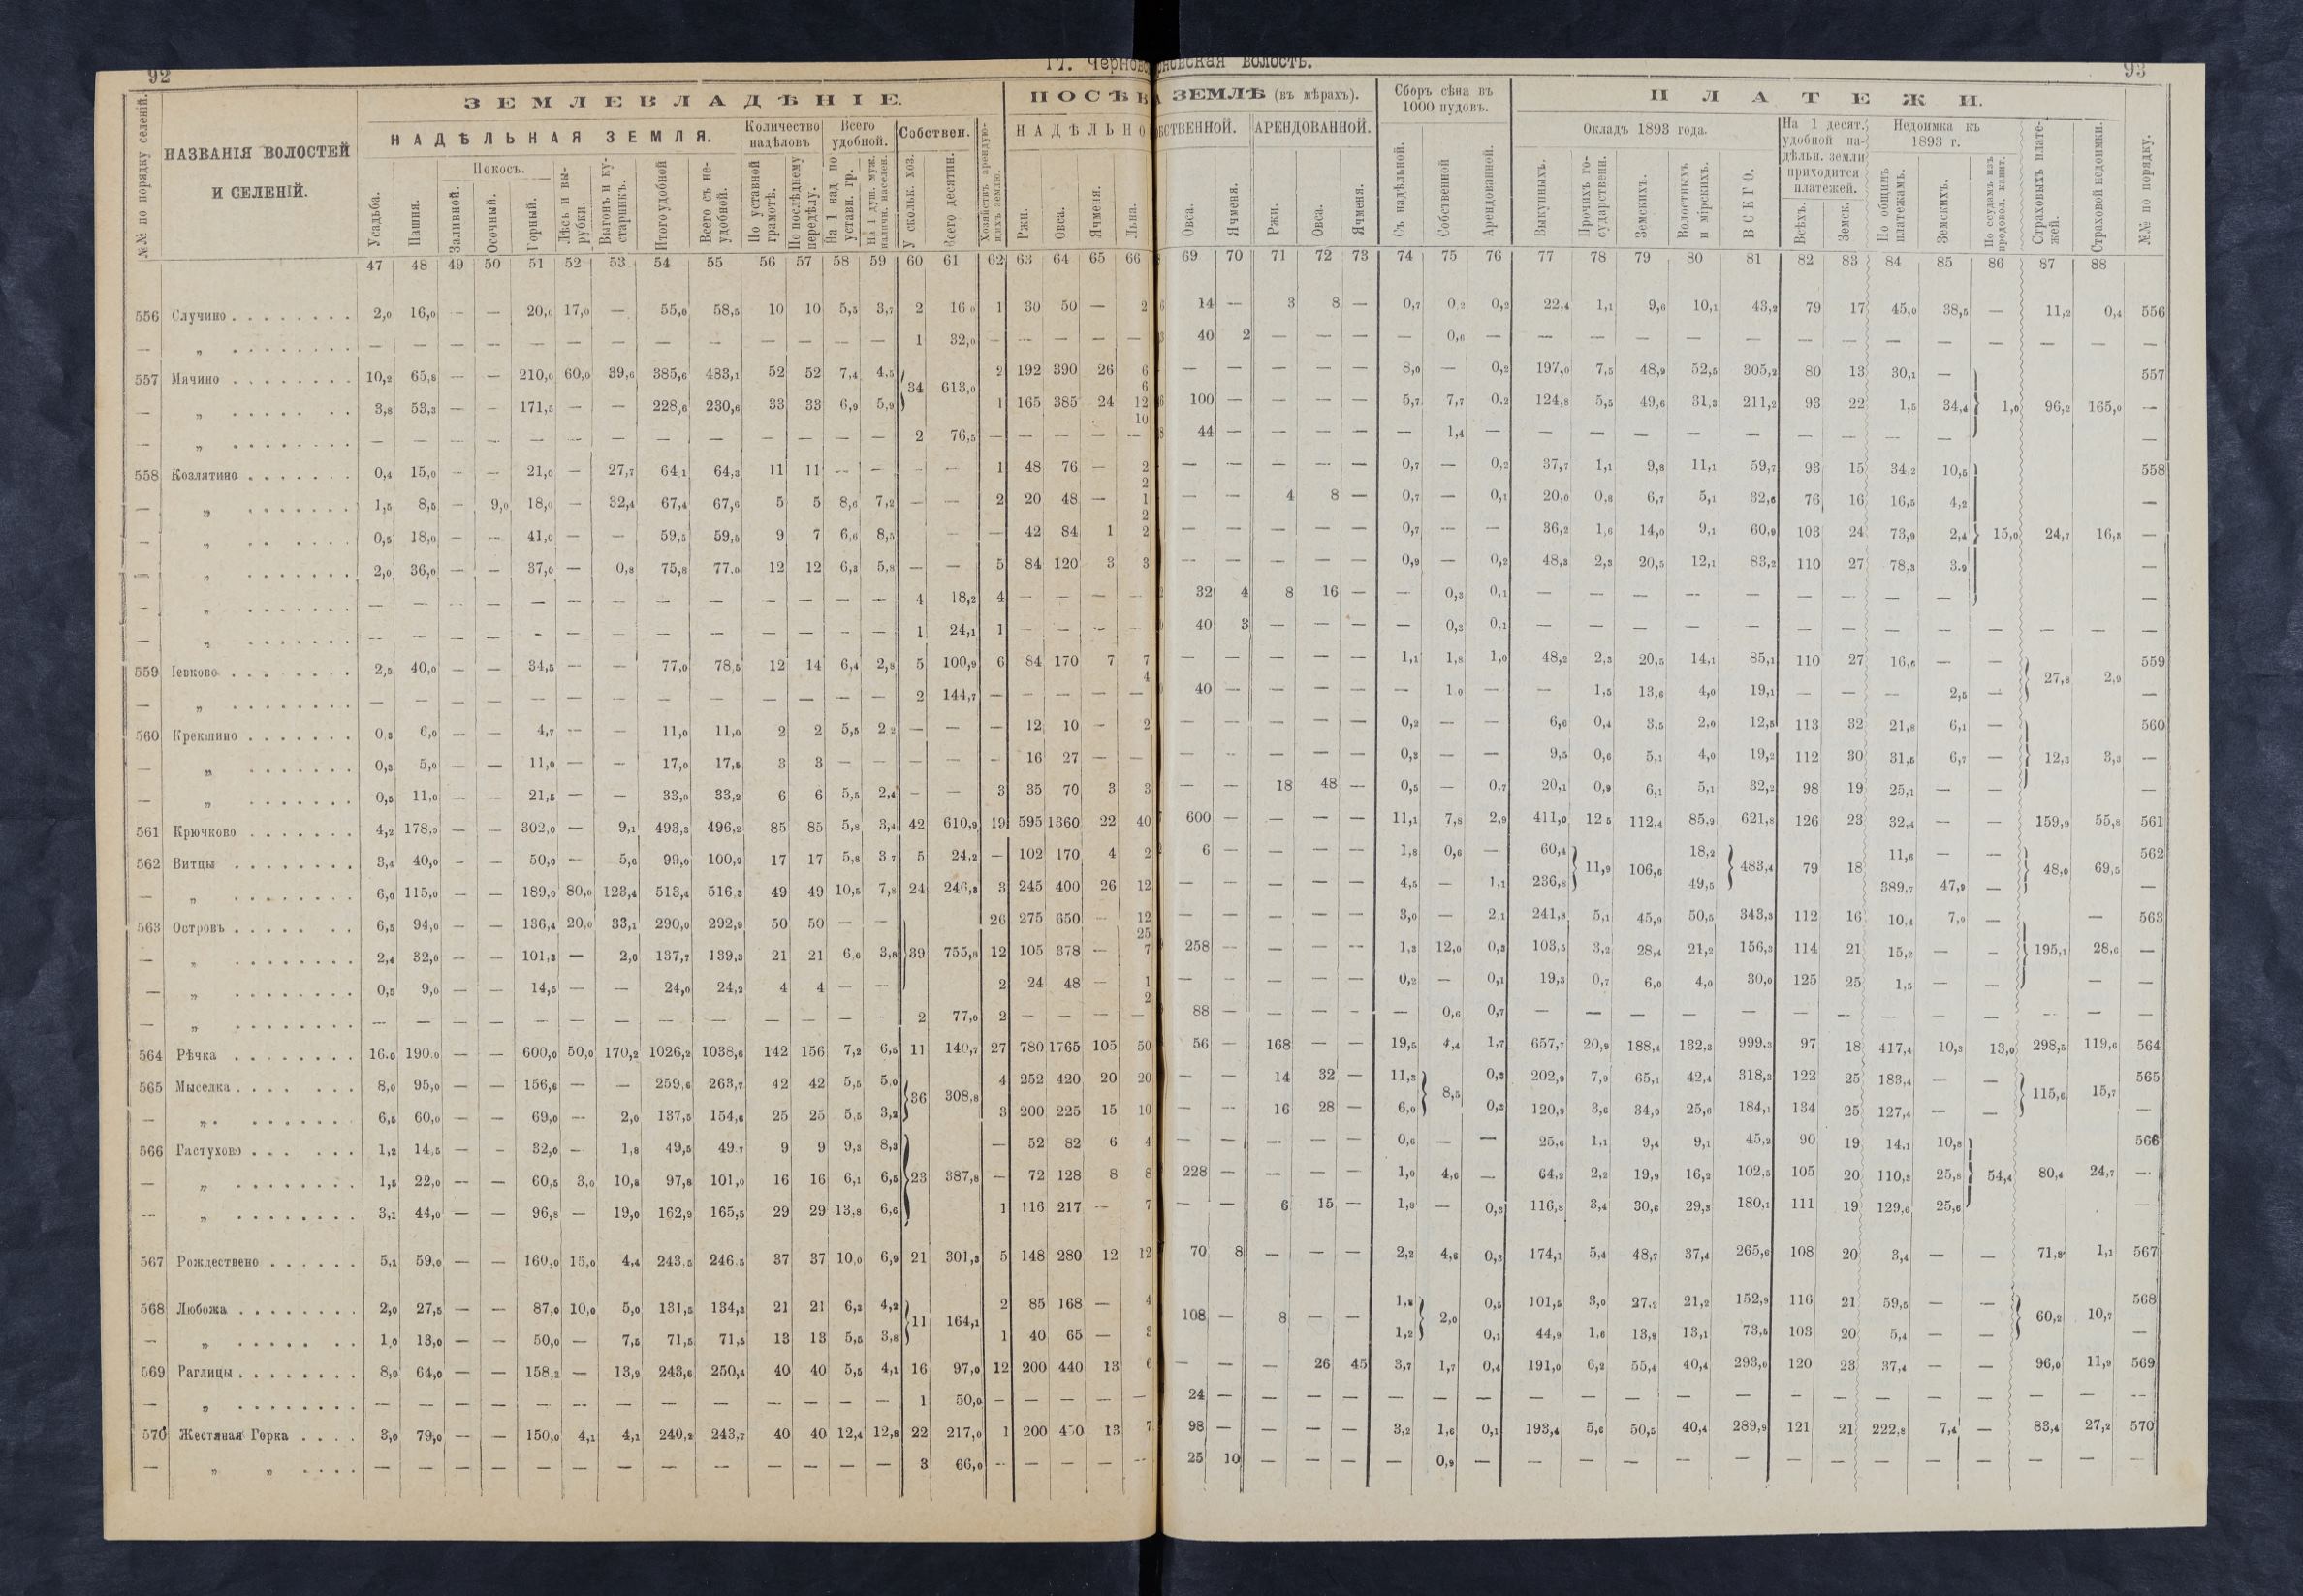 92
17. Черново
новская волость.
93
ЗЕМЛЕВЛАДѢНІЕ.
ПОСѢВ
А ЗЕМЛѢ (въ мѣрахъ).
Сборъ сѣна въ 1000 пудовъ.
ПЛАТЕЖИ.
№№ по порядку селеній.
НАЗВАНІЯ ВОЛОСТЕЙ
И СЕЛЕНІЙ.
НАДѢЛЬНАЯ ЗЕМЛЯ.
Количество надѣловъ
Всего удобной.
Собствен.
НАДѢЛЬНО
БСТВЕННОЙ.
АРЕНДОВАННОЙ.
Окладъ 1893 года.
На 1 десят. удобной надѣльн. земли приходится платежей.
Недоимка къ 1893 г.
Покосъ.
Усадьба.
Пашня.
Заливной.
Осочный.
Горный.
Лѣсъ и вырубки.
Выгонъ и кустарникъ.
Итого удобной
Всего съ неудобной.
По уставной грамотѣ.
По послѣднему передѣлу.
На 1 над по уставн. гр.
На 1 душ. муж. наличн. населен.
У скольк. хоз.
Всего десятин.
Хозяйствъ арендующихъ землю.
Ржи.
Овса.
Ячменя.
Льна.
Овса.
Ячменя.
Ржи.
Овса.
Ячменя.
Съ надѣльной.
Собственной
Арендованной.
Выкупныхъ.
Прочихъ государственн.
Земскихъ.
Волостныхъ и мірскихъ.
ВСЕГО.
Всѣхъ.
Земск.
По общимъ платежамъ.
Земскихъ.
По ссудамъ изъ продовол. капит.
Страховыхъ платежей.
Страховой недоимки.
№№ по порядку.
47 48 49 50 51 52 53 54 55 56 57 58 59 60 61 62 63 64 65 66 69 70 71 72 73 74 75 76 77 78 79 80 81 82 83 84 85 86 87 88
556 Случино 2,0 16,0 — — 20,0 17,0 — 55,0 58,5 10 10 5,5 3,7 2 16,0 1 30 50 — 2 14 — 3 8 — 0,7 0,2 0,2 22,4 1,1 9,6 10,1 43,2 79 17 45,0 38,5 — 11,2 0,4 556
— „ — — — — — — — — — — — — — 1 32,0 — — — — — 40 2 — — — — 0,6 — — — — — — — — — — — — — —
557 Мячино 10,2 65,8 — — 210,0 60,0 39,6 385,6 483,1 52 52 7,4 4,5 34 613,0 2 192 390 26 6 6 — — — — — 8,0 — 0,2 197,0 7,5 48,9 52,5 305,2 80 13 30,1 — 557
— „ 3,8 53,3 — — 171,5 — — 228,6 230,6 33 33 6,9 5,9 1 165 385 24 12 10 100 — — — — 5,7 7,7 0,2 124,8 5,5 49,6 31,3 211,2 93 22 1,5 34,4 1,0 96,2 165,0 —
— „ — — — — — — — — — — — — — 2 76,5 — — — — — 44 — — — — — 1,4 — — — — — — — — — — —
558 Козлятино 0,4 15,0 — — 21,0 — 27,7 64,1 64,3 11 11 — — — — 1 48 76 — 2 2 — — — — — 0,7 — 0,2 37,7 1,1 9,8 11,1 59,7 93 15 34,2 10,5 558
— „ 1,5 8,5 — 9,0 18,0 — 32,4 67,4 67,6 5 5 8,6 7,2 — — 2 20 48 — 1 2 — — 4 8 — 0,7 — 0,1 20,0 0,8 6,7 5,1 32,6 76 16 16,5 4,2 —
— „ 0,5 18,0 — — 41,0 — — 59,5 59,5 9 7 6,6 8,5 — — — 42 84 1 2 — — — — — 0,7 — — 36,2 1,6 14,0 9,1 60,9 103 24 73,9 2,4 15,0 24,7 16,8 —
— „ 2,0 36,0 — — 37,0 — 0,8 75,8 77,0 12 12 6,3 5,8 — — 5 84 120 3 3 — — — — — 0,9 — 0,2 48,3 2,3 20,5 12,1 83,2 110 27 78,3 3,9 —
— „ — — — — — — — — — — — — — 4 18,2 4 — — — — 32 4 8 16 — — 0,3 0,1 — — — — — — — — — —
— „ — — — — — — — — — — — — — 1 24,1 1 — — — — 40 3 — — — — 0,3 0,1 — — — — — — — — — — — — —
559 Іевково 2,5 40,0 — — 34,5 — — 77,0 78,5 12 14 6,4 2,8 5 100,9 6 84 170 7 7 4 — — — — — 1,1 1,8 1,0 48,2 2,3 20,5 14,1 85,1 110 27 16,6 — — 27,8 2,9 559
— „ — — — — — — — — — — — — — 2 144,7 — — — — — 40 — — — — — 1,0 — — 1,5 13,6 4,0 19,1 — — — 2,5 — —
560 Крекшино 0,3 6,0 — — 4,7 — — 11,0 11,0 2 2 5,5 2,2 — — — 12 10 — 2 — — — — — 0,2 — — 6,6 0,4 3,5 2,0 12,5 113 32 21,8 6,1 — 560
— „ 0,3 5,0 — — 11,0 — — 17,0 17,8 3 3 — — — — — 16 27 — — — — — — — 0,3 — — 9,5 0,6 5,1 4,0 19,2 112 30 31,5 6,7 — 12,3 3,3 —
— „ 0,5 11,0 — — 21,5 — — 33,0 33,2 6 6 5,5 2,4 — — 3 35 70 3 3 — — 18 48 — 0,5 — 0,7 20,1 0,9 6,1 5,1 32,2 98 19 25,1 — — —
561 Крючково 4,2 178,0 — — 302,0 — 9,1 493,3 496,2 85 85 5,8 3,4 42 610,9 19 595 1360 22 40 600 — — — — 11,1 7,8 2,9 411,0 12,5 112,4 85,9 621,8 126 23 32,4 — — 159,9 55,8 561
562 Витцы 3,4 40,0 — — 50,0 — 5,6 99,0 100,9 17 17 5,8 3,7 5 24,2 — 102 170 4 2 6 — — — — 1,8 0,6 — 60,4 11,9 106,6 18,2 483,4 79 18 11,6 — — 48,0 69,5 562
— „ 6,0 115,0 — — 189,0 80,0 123,4 513,4 516,3 49 49 10,5 7,8 24 246,3 3 245 400 26 12 — — — — — 4,5 — 1,1 236,8 49,5 389,7 47,9 — —
563 Островъ 6,5 94,0 — — 136,4 20,0 33,1 290,0 292,9 50 50 — — 26 275 650 — 12 25 — — — — — 3,0 — 2,1 241,8 5,1 45,9 50,5 343,3 112 16 10,4 7,9 — — 563
— „ 2,4 32,0 — — 101,3 — 2,0 137,7 139,3 21 21 6,6 3,8 39 755,8 12 105 378 — 7 258 — — — — 1,3 12,0 0,3 103,5 3,2 28,4 21,2 156,3 114 21 15,2 — — 195,1 28,6 —
— „ 0,5 9,0 — — 14,5 — — 24,0 24,2 4 4 — — 2 24 48 — 1 2 — — — — — 0,2 — 0,1 19,3 0,7 6,0 4,0 30,0 125 25 1,5 — — — —
— „ — — — — — — — — — — — — — 2 77,0 2 — — — — 88 — — — — — 0,6 0,7 — — — — — — — — — — — — —
564 Рѣчка 16,0 190,0 — — 600,0 50,0 170,2 1026,2 1038,6 142 156 7,2 6,5 11 140,7 27 780 1765 105 50 56 — 168 — — 19,5 4,4 1,7 657,7 20,9 188,4 132,3 999,3 97 18 417,4 10,3 13,0 298,5 119,6 564
565 Мыселка 8,0 95,0 — — 156,6 — — 259,6 263,7 42 42 5,5 5,0 36 308,8 4 252 420 20 20 — — 14 32 — 11,3 8,5 0,3 202,9 7,9 65,1 42,4 318,3 122 25 183,4 — — 115,6 15,7 565
— „ 6,5 60,0 — — 69,0 — 2,0 137,5 154,6 25 25 5,5 3,2 3 200 225 15 10 — — 16 28 — 6,0 0,3 120,9 3,6 34,0 25,6 184,1 134 25 127,4 — — —
566 Гастухово 1,2 14,5 — — 32,0 — 1,8 49,5 49,7 9 9 9,3 8,3 — 52 82 6 4 — — — — — 0,6 — — 25,6 1,1 9,4 9,1 45,2 90 19 14,1 10,8 566
— „ 1,5 22,0 — — 60,5 3,0 10,8 97,8 101,0 16 16 6,1 6,5 23 387,8 — 72 128 8 8 228 — — — — 1,0 4,6 — 64,2 2,2 19,9 16,2 102,5 105 20 110,3 25,8 54,4 80,4 24,7 —
— „ 3,1 44,0 — — 96,8 — 19,0 162,9 165,5 29 29 13,8 6,6 1 116 217 — 7 — — 6 15 — 1,8 — 0,3 116,8 3,4 30,6 29,3 180,1 111 19 129,6 25,6 —
567 Рождествено 5,1 59,0 — — 160,0 15,0 4,4 243,5 246,5 37 37 10,0 6,9 21 301,3 5 148 280 12 12 70 8 — — — 2,2 4,6 0,3 174,1 5,4 48,7 37,4 265,6 108 20 3,4 — — 71,8 1,1 567
568 Любожа 2,0 27,5 — — 87,0 10,0 5,0 131,5 134,3 21 21 6,3 4,2 11 164,1 2 85 168 — 4 108 — 8 — — 1,8 2,0 0,5 101,5 3,0 27,2 21,2 152,9 116 21 59,5 — — 60,2 10,7 568
— „ 1,0 13,0 — — 50,0 — 7,5 71,5 71,5 13 13 5,5 3,8 1 40 65 — 3 1,2 0,1 44,9 1,6 13,9 13,1 73,5 103 20 5,4 — — —
569 Раглицы 8,0 64,0 — — 158,2 — 13,9 243,6 250,4 40 40 5,5 4,1 16 97,0 12 200 440 13 6 — — — 26 45 3,7 1,7 0,4 191,0 6,2 55,4 40,4 293,0 120 23 37,4 — — 96,0 11,9 569
— „ — — — — — — — — — — — — — 1 50,0 — — — — — 24 — — — — — — — — — — — — — — — — — — — —
570 Жестяная Горка 3,0 79,0 — — 150,0 4,1 4,1 240,2 243,7 40 40 12,4 12,8 22 217,0 1 200 13 7 98 — — — — 3,2 1,6 0,1 193,4 5,6 50,5 40,4 289,9 121 21 222,8 7,4 — 83,4 27,2 570
— „ „ — — — — — — — — — — — — — 3 66,0 — — — — — 25 10 — — — — 0,9 — — — — — — — — — — — — — —